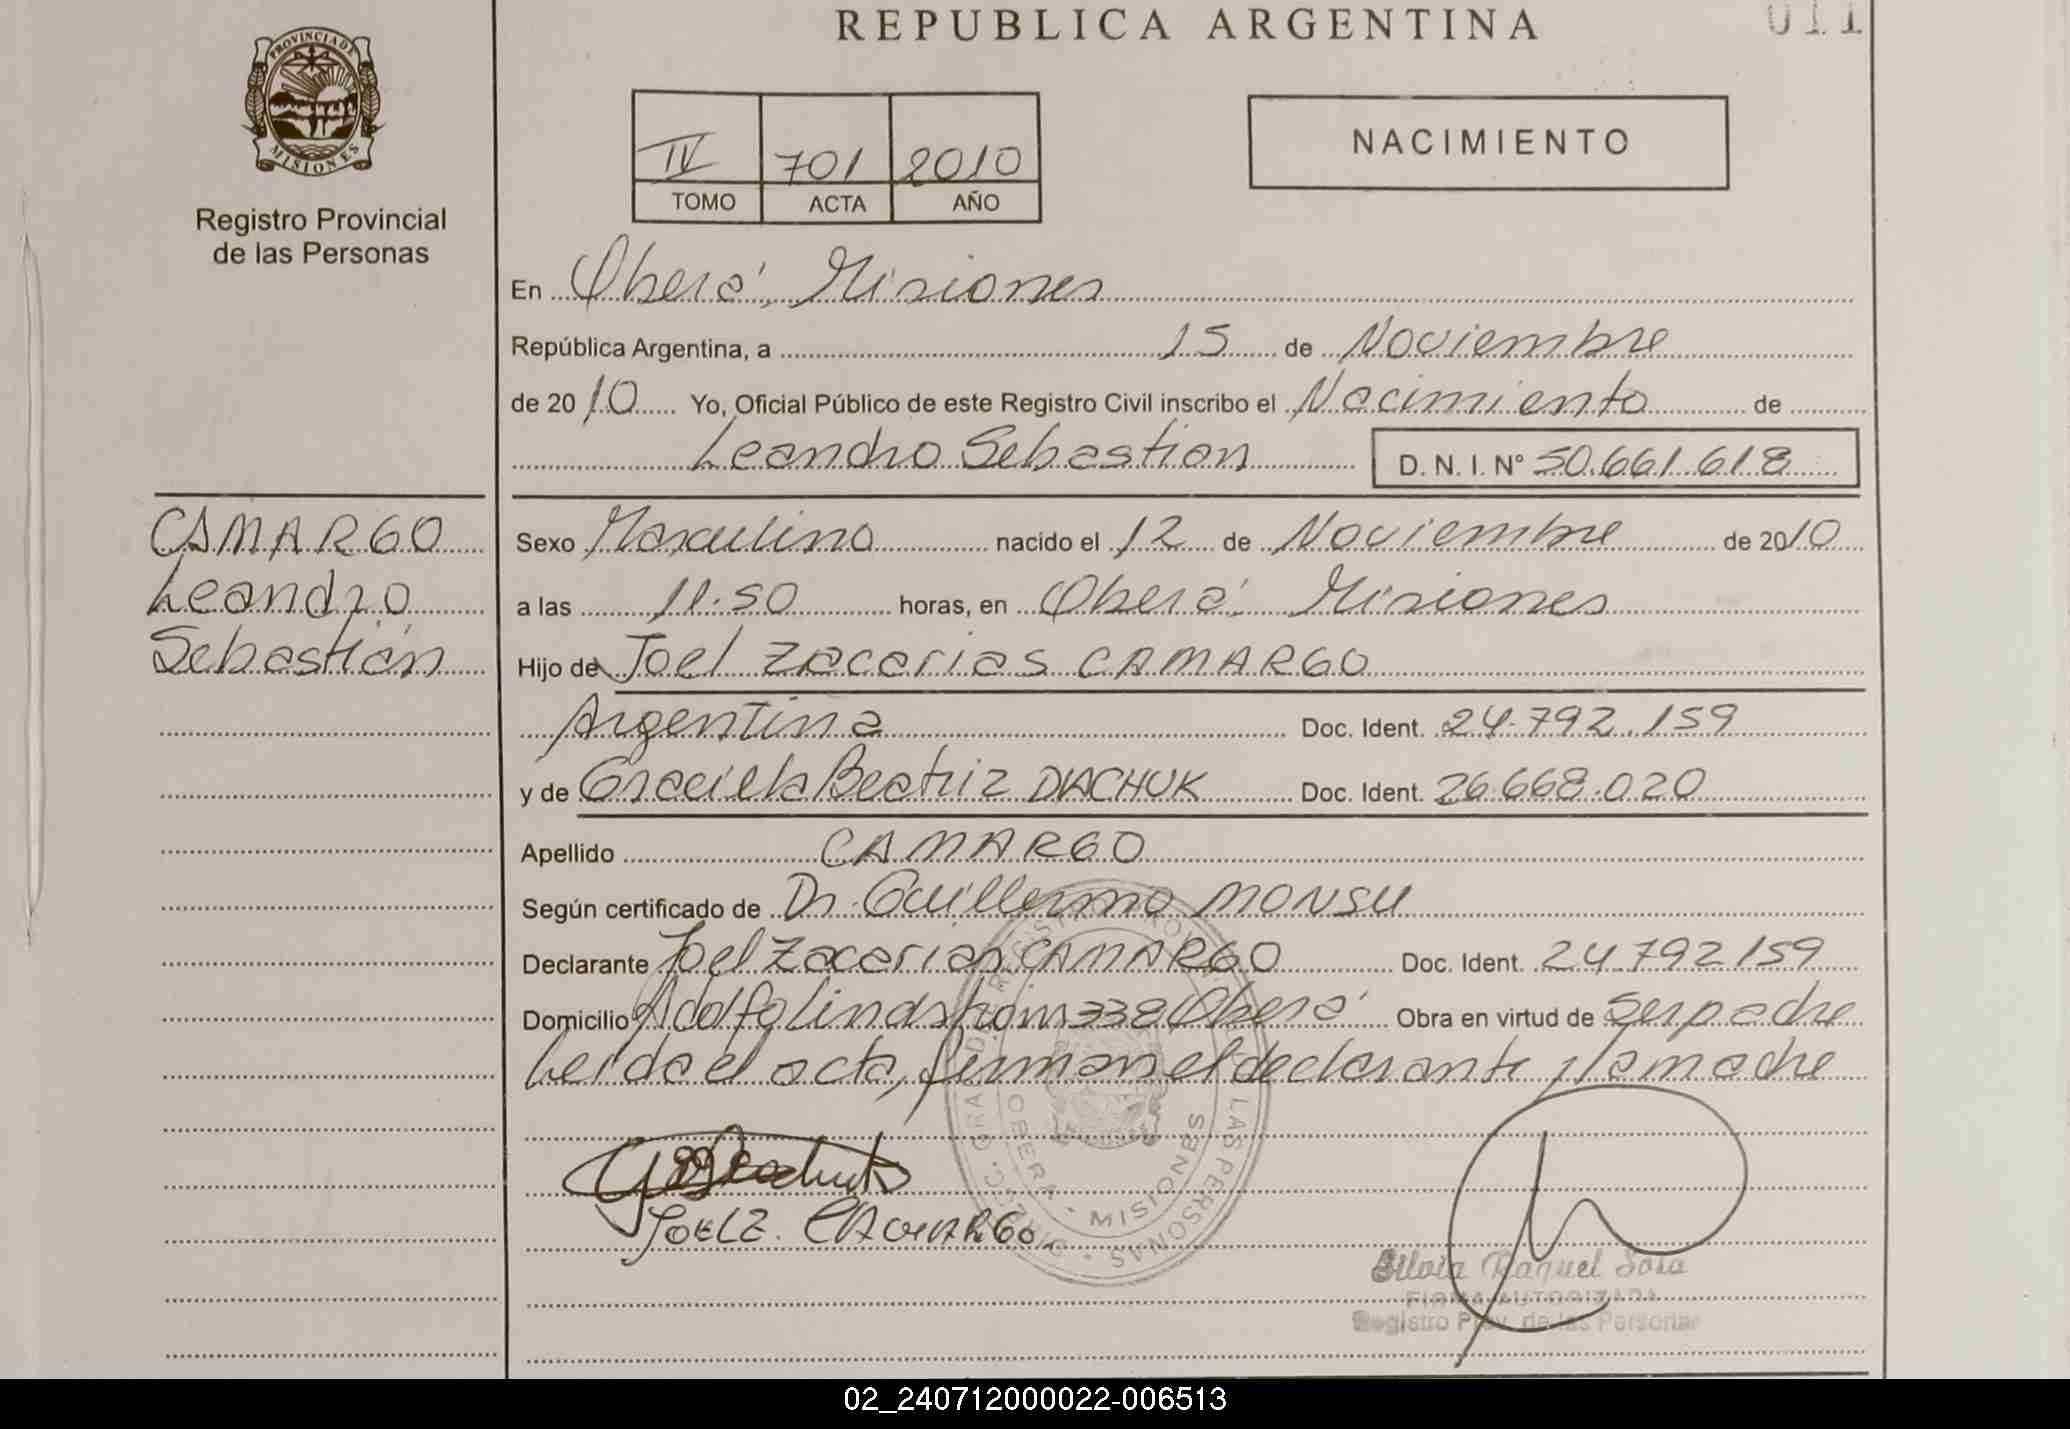 REPUBLICA ARGENTINA
011
PROVINCIA DE
MISIONES
Registro Provincial
de las Personas
IV 701 2010
TOMO ACTA AÑO
NACIMIENTO
En Oberá, Misiones
República Argentina, a 15 de Noviembre
de 2010 Yo, Oficial Público de este Registro Civil inscribo el Nacimiento de
Leandro Sebastian D.N.I. Nº 50.661.618
CAMARGO
Leandro
Sebastián
Sexo Masculino nacido el 12 de Noviembre de 2010
a las 11.50 horas, en Oberá. Misiones
Hijo de Joel Zacarias CAMARGO
Argentina Doc. Ident. 24.792.159
y de Graciela Beatriz DIACHUK Doc. Ident. 26.668.020
Apellido CAMARGO
Según certificado de Dr. Guillermo MONSU
Declarante Joel Zacarias CAMARGO Doc. Ident. 24.792159
Domicilio Adolfo Lindstrom 338 Oberá Obra en virtud de ser padre
Leida el acta, firman el declarante y la madre
JOEL Z. CAMARGO.
OBERA - MISIONES
LAS PERSONAS
Silvia Raquel Sosa
FIRMA AUTORIZADA
Registro Prov. de las Personas
02_240712000022-006513